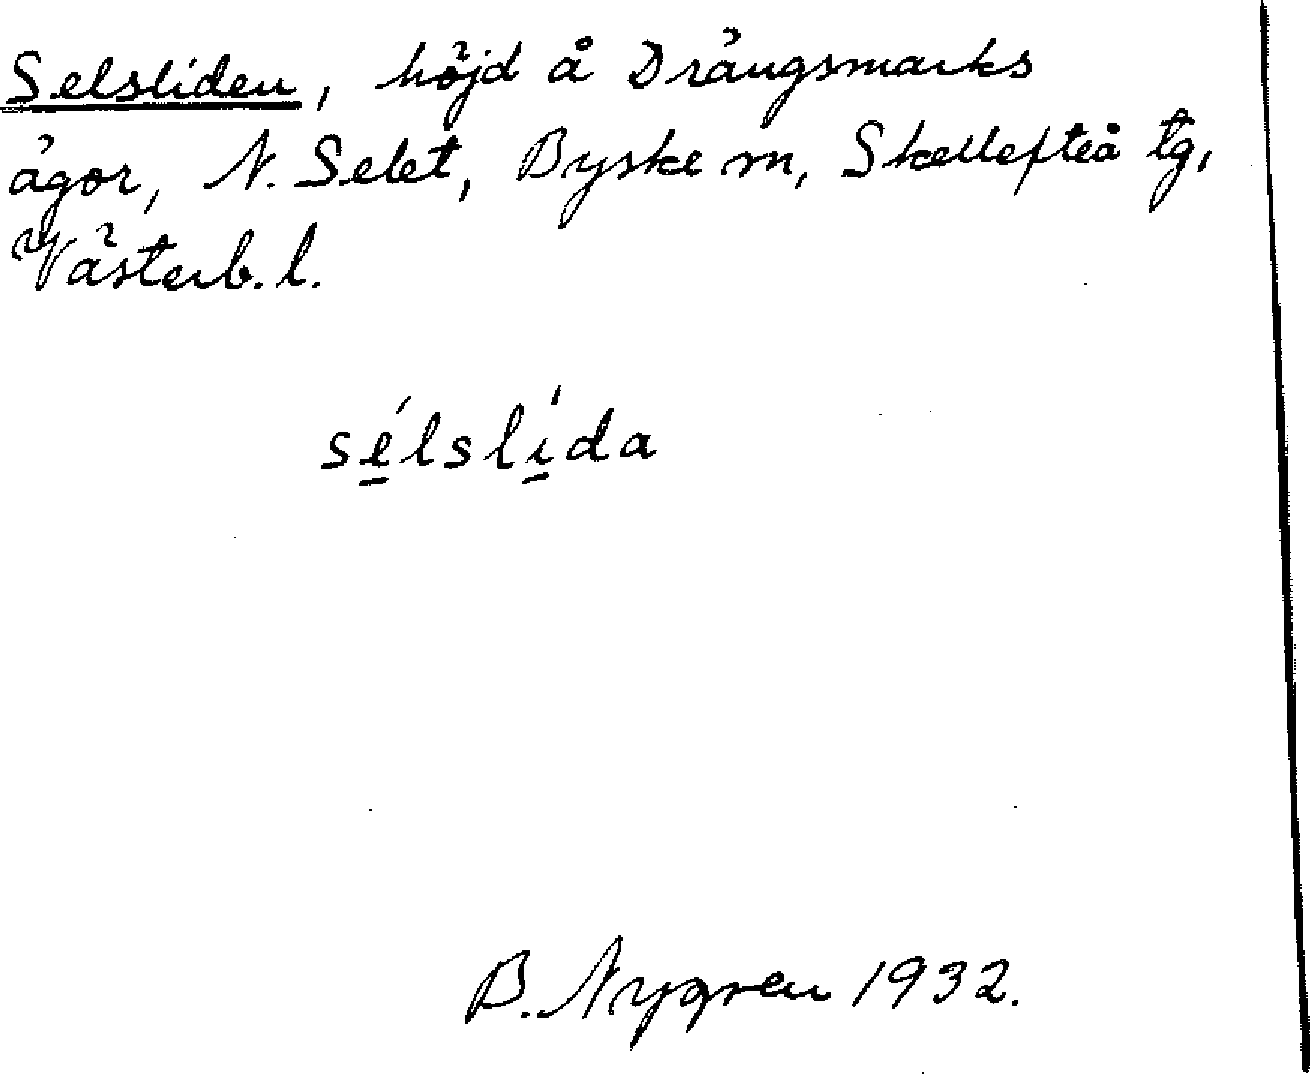 Selsliden, höjd å Drängsmarks
ägor, N. Selet, Byske sn, Skellefteå tg,
Västerb. l.
sé̱lslí̱da
B. Nygren 1932.